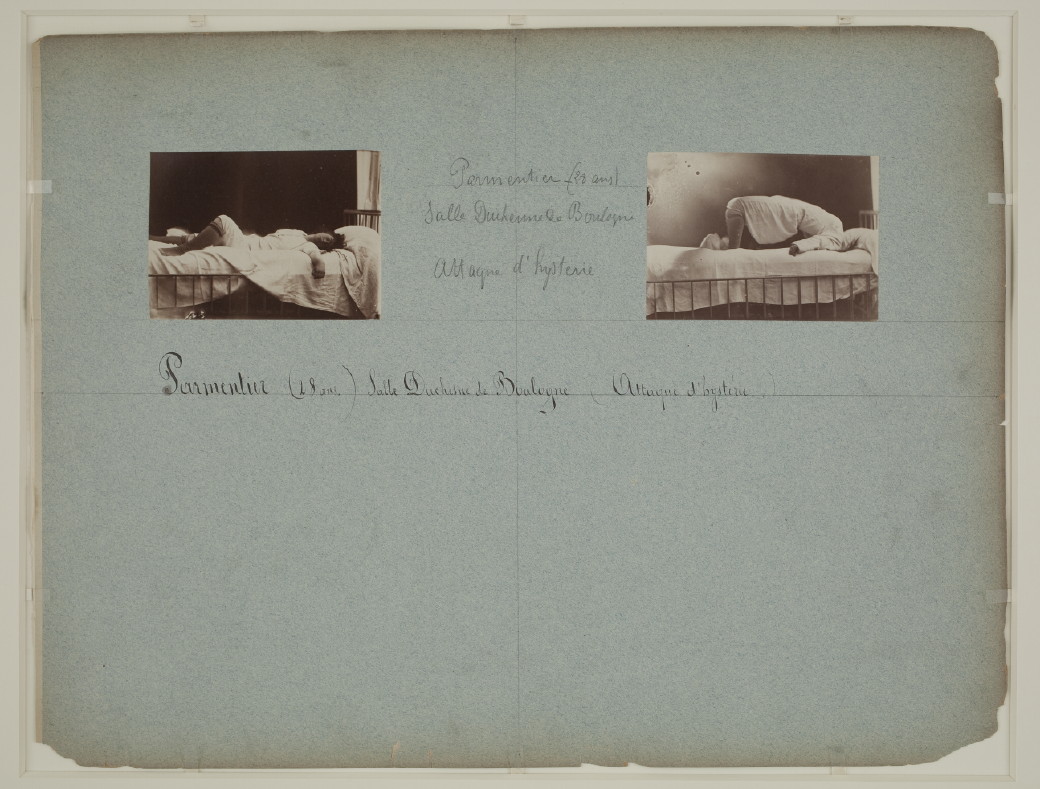 Parmentier (28 ans)
Salle Duchenne de Boulogne
Attaque d'hystérie
Parmentier (28 ans) Salle Duchesne de Boulogne (Attaque d'hystérie.)